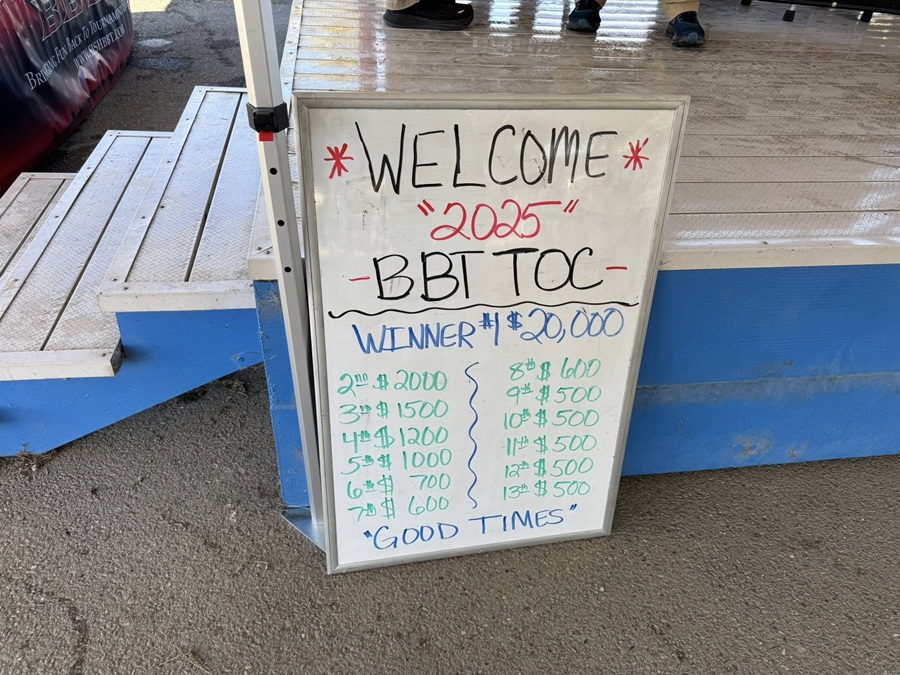 BBT
BRINGING FUN BACK TO TOURNAMENT
* WELCOME *
"2025"
-BBT TOC-
WINNER #1 $20,000
2ND $2000
3RD $1500
4th $1200
5th $1000
6th $ 700
7th $ 600
8th $600
9th $500
10th $500
11th $500
12th $500
13th $500
"GOOD TIMES"